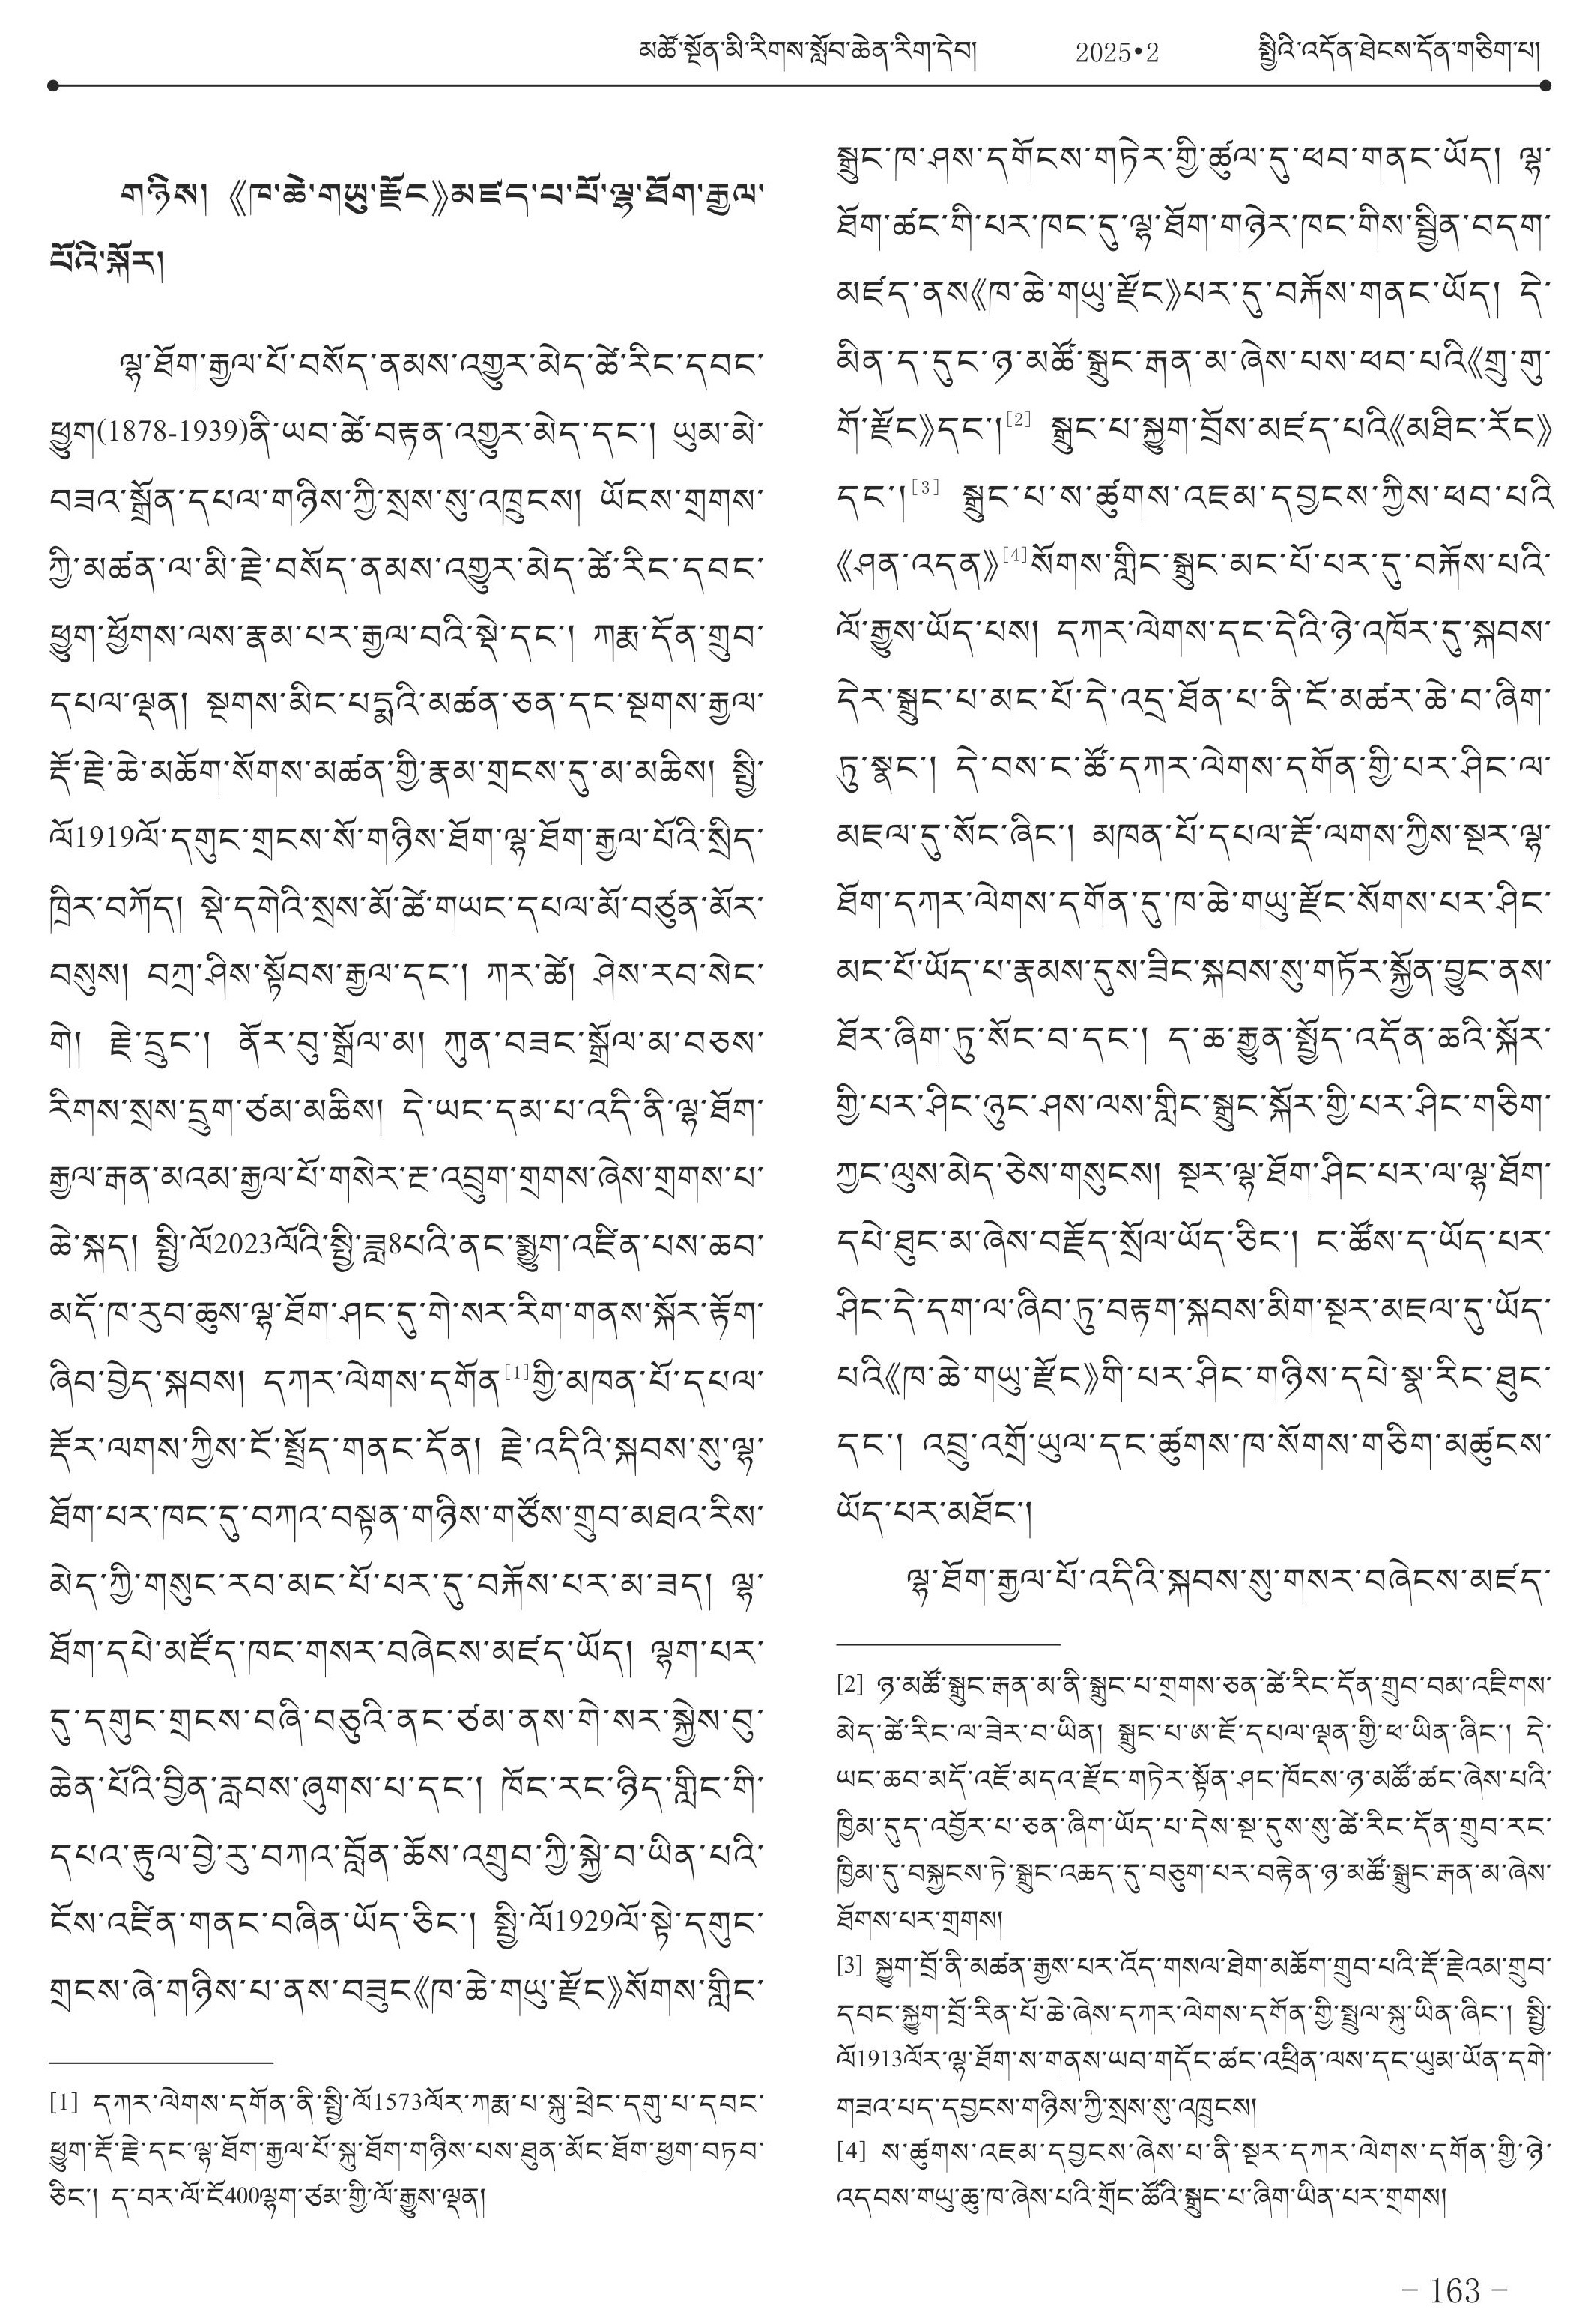 མཚོ་སྔོན་མི་རིགས་སློབ་ཆེན་རིག་དེབ། 2025•2 སྤྱིའི་འདོན་ཐེངས་དོན་གཅིག་པ།
གཉིས། 《ཁ་ཆེ་གཡུ་རྫོང》མཛད་པ་པོ་ལྷ་ཐོག་རྒྱལ་
པོའི་སྐོར།
ལྷ་ཐོག་རྒྱལ་པོ་བསོད་ནམས་འགྱུར་མེད་ཚེ་རིང་དབང་
ཕྱུག(1878-1939)ནི་ཡབ་ཚེ་བརྟན་འགྱུར་མེད་དང་། ཡུམ་མེ་
བཟའ་སྒྲོན་དཔལ་གཉིས་ཀྱི་སྲས་སུ་འཁྲུངས། ཡོངས་གྲགས་
ཀྱི་མཚན་ལ་མི་རྗེ་བསོད་ནམས་འགྱུར་མེད་ཚེ་རིང་དབང་
ཕྱུག་ཕྱོགས་ལས་རྣམ་པར་རྒྱལ་བའི་སྡེ་དང་། ཀརྨ་དོན་གྲུབ་
དཔལ་ལྡན། སྔགས་མིང་པདྨའི་མཚན་ཅན་དང་སྔགས་རྒྱལ་
རྡོ་རྗེ་ཆེ་མཆོག་སོགས་མཚན་གྱི་རྣམ་གྲངས་དུ་མ་མཆིས། སྤྱི་
ལོ1919ལོ་དགུང་གྲངས་སོ་གཉིས་ཐོག་ལྷ་ཐོག་རྒྱལ་པོའི་སྲིད་
ཁྲིར་བཀོད། སྡེ་དགེའི་སྲས་མོ་ཚེ་གཡང་དཔལ་མོ་བཙུན་མོར་
བསུས། བཀྲ་ཤིས་སྟོབས་རྒྱལ་དང་། ཀར་ཚེ། ཤེས་རབ་སེང་
གེ། རྗེ་དྲུང་། ནོར་བུ་སྒྲོལ་མ། ཀུན་བཟང་སྒྲོལ་མ་བཅས་
རིགས་སྲས་དྲུག་ཙམ་མཆིས། དེ་ཡང་དམ་པ་འདི་ནི་ལྷ་ཐོག་
རྒྱལ་རྒན་མའམ་རྒྱལ་པོ་གསེར་རྔ་འབྲུག་གྲགས་ཞེས་གྲགས་པ་
ཆེ་སྐད། སྤྱི་ལོ2023ལོའི་སྤྱི་ཟླ8པའི་ནང་སྨྱུག་འཛིན་པས་ཆབ་
མདོ་ཁ་རུབ་ཆུས་ལྷ་ཐོག་ཤང་དུ་གེ་སར་རིག་གནས་སྐོར་རྟོག་
ཞིབ་བྱེད་སྐབས། དཀར་ལེགས་དགོན[1]གྱི་མཁན་པོ་དཔལ་
རྡོར་ལགས་ཀྱིས་ངོ་སྤྲོད་གནང་དོན། རྗེ་འདིའི་སྐབས་སུ་ལྷ་
ཐོག་པར་ཁང་དུ་བཀའ་བསྟན་གཉིས་གཙོས་གྲུབ་མཐའ་རིས་
མེད་ཀྱི་གསུང་རབ་མང་པོ་པར་དུ་བརྐོས་པར་མ་ཟད། ལྷ་
ཐོག་དཔེ་མཛོད་ཁང་གསར་བཞེངས་མཛད་ཡོད། ལྷག་པར་
དུ་དགུང་གྲངས་བཞི་བཅུའི་ནང་ཙམ་ནས་གེ་སར་སྐྱེས་བུ་
ཆེན་པོའི་བྱིན་རླབས་ཞུགས་པ་དང་། ཁོང་རང་ཉིད་གླིང་གི་
དཔའ་རྟུལ་བྱེ་རུ་བཀའ་བློན་ཆོས་འགྲུབ་ཀྱི་སྐྱེ་བ་ཡིན་པའི་
ངོས་འཛིན་གནང་བཞིན་ཡོད་ཅིང་། སྤྱི་ལོ1929ལོ་སྟེ་དགུང་
གྲངས་ཞེ་གཉིས་པ་ནས་བཟུང《ཁ་ཆེ་གཡུ་རྫོང》སོགས་གླིང་
[1] དཀར་ལེགས་དགོན་ནི་སྤྱི་ལོ1573ལོར་ཀརྨ་པ་སྐུ་ཕྲེང་དགུ་པ་དབང་
ཕྱུག་རྡོ་རྗེ་དང་ལྷ་ཐོག་རྒྱལ་པོ་སྐུ་ཐོག་གཉིས་པས་ཐུན་མོང་ཐོག་ཕྱག་བཏབ་
ཅིང་། ད་བར་ལོ་ངོ400ལྷག་ཙམ་གྱི་ལོ་རྒྱུས་ལྡན།
སྒྲུང་ཁ་ཤས་དགོངས་གཏེར་གྱི་ཚུལ་དུ་ཕབ་གནང་ཡོད། ལྷ་
ཐོག་ཚང་གི་པར་ཁང་དུ་ལྷ་ཐོག་གཉེར་ཁང་གིས་སྦྱིན་བདག་
མཛད་ནས《ཁ་ཆེ་གཡུ་རྫོང》པར་དུ་བརྐོས་གནང་ཡོད། དེ་
མིན་ད་དུང་ཉ་མཚོ་སྒྲུང་རྒན་མ་ཞེས་པས་ཕབ་པའི《གྲུ་གུ་
གོ་རྫོང》དང་།[2] སྒྲུང་པ་སྐྱུག་བྲོས་མཛད་པའི《མཐིང་རོང》
དང་།[3] སྒྲུང་པ་ས་ཚུགས་འཇམ་དབྱངས་ཀྱིས་ཕབ་པའི
《ཤན་འདན》[4]སོགས་གླིང་སྒྲུང་མང་པོ་པར་དུ་བརྐོས་པའི་
ལོ་རྒྱུས་ཡོད་པས། དཀར་ལེགས་དང་དེའི་ཉེ་འཁོར་དུ་སྐབས་
དེར་སྒྲུང་པ་མང་པོ་དེ་འདྲ་ཐོན་པ་ནི་ངོ་མཚར་ཆེ་བ་ཞིག་
ཏུ་སྣང་། དེ་བས་ང་ཚོ་དཀར་ལེགས་དགོན་གྱི་པར་ཤིང་ལ་
མཇལ་དུ་སོང་ཞིང་། མཁན་པོ་དཔལ་རྡོ་ལགས་ཀྱིས་སྔར་ལྷ་
ཐོག་དཀར་ལེགས་དགོན་དུ་ཁ་ཆེ་གཡུ་རྫོང་སོགས་པར་ཤིང་
མང་པོ་ཡོད་པ་རྣམས་དུས་ཟིང་སྐབས་སུ་གཏོར་སྐྱོན་བྱུང་ནས་
ཐོར་ཞིག་ཏུ་སོང་བ་དང་། ད་ཆ་རྒྱུན་སྤྱོད་འདོན་ཆའི་སྐོར་
གྱི་པར་ཤིང་ཉུང་ཤས་ལས་གླིང་སྒྲུང་སྐོར་གྱི་པར་ཤིང་གཅིག་
ཀྱང་ལུས་མེད་ཅེས་གསུངས། སྔར་ལྷ་ཐོག་ཤིང་པར་ལ་ལྷ་ཐོག་
དཔེ་ཐུང་མ་ཞེས་བརྗོད་སྲོལ་ཡོད་ཅིང་། ང་ཚོས་ད་ཡོད་པར་
ཤིང་དེ་དག་ལ་ཞིབ་ཏུ་བརྟག་སྐབས་མིག་སྔར་མཇལ་དུ་ཡོད་
པའི《ཁ་ཆེ་གཡུ་རྫོང》གི་པར་ཤིང་གཉིས་དཔེ་སྣ་རིང་ཐུང་
དང་། འབྲུ་འགྲོ་ཡུལ་དང་ཚུགས་ཁ་སོགས་གཅིག་མཚུངས་
ཡོད་པར་མཐོང་།
ལྷ་ཐོག་རྒྱལ་པོ་འདིའི་སྐབས་སུ་གསར་བཞེངས་མཛད་
[2] ཉ་མཚོ་སྒྲུང་རྒན་མ་ནི་སྒྲུང་པ་གྲགས་ཅན་ཚེ་རིང་དོན་གྲུབ་བམ་འཇིགས་
མེད་ཚེ་རིང་ལ་ཟེར་བ་ཡིན། སྒྲུང་པ་ཨ་ཇོ་དཔལ་ལྡན་གྱི་ཕ་ཡིན་ཞིང་། དེ་
ཡང་ཆབ་མདོ་འཇོ་མདའ་རྫོང་གཏེར་སྟོན་ཤང་ཁོངས་ཉ་མཚོ་ཚང་ཞེས་པའི་
ཁྱིམ་དུད་འབྱོར་པ་ཅན་ཞིག་ཡོད་པ་དེས་སྔ་དུས་སུ་ཚེ་རིང་དོན་གྲུབ་རང་
ཁྱིམ་དུ་བསྐྱངས་ཏེ་སྒྲུང་འཆད་དུ་བཅུག་པར་བརྟེན་ཉ་མཚོ་སྒྲུང་རྒན་མ་ཞེས་
ཐོགས་པར་གྲགས།
[3] སྐྱུག་བྲོ་ནི་མཚན་རྒྱས་པར་འོད་གསལ་ཐེག་མཆོག་གྲུབ་པའི་རྡོ་རྗེའམ་གྲུབ་
དབང་སྐྱུག་བྲོ་རིན་པོ་ཆེ་ཞེས་དཀར་ལེགས་དགོན་གྱི་སྤྲུལ་སྐུ་ཡིན་ཞིང་། སྤྱི་
ལོ1913ལོར་ལྷ་ཐོག་ས་གནས་ཡབ་གདོང་ཚང་འཕྲིན་ལས་དང་ཡུམ་ཡོན་དགེ་
གཟའ་པད་དབྱངས་གཉིས་ཀྱི་སྲས་སུ་འཁྲུངས།
[4] ས་ཚུགས་འཇམ་དབྱངས་ཞེས་པ་ནི་སྔར་དཀར་ལེགས་དགོན་གྱི་ཉེ་
འདབས་གཡུ་ཆུ་ཁ་ཞེས་པའི་གྲོང་ཚོའི་སྒྲུང་པ་ཞིག་ཡིན་པར་གྲགས།
– 163 –